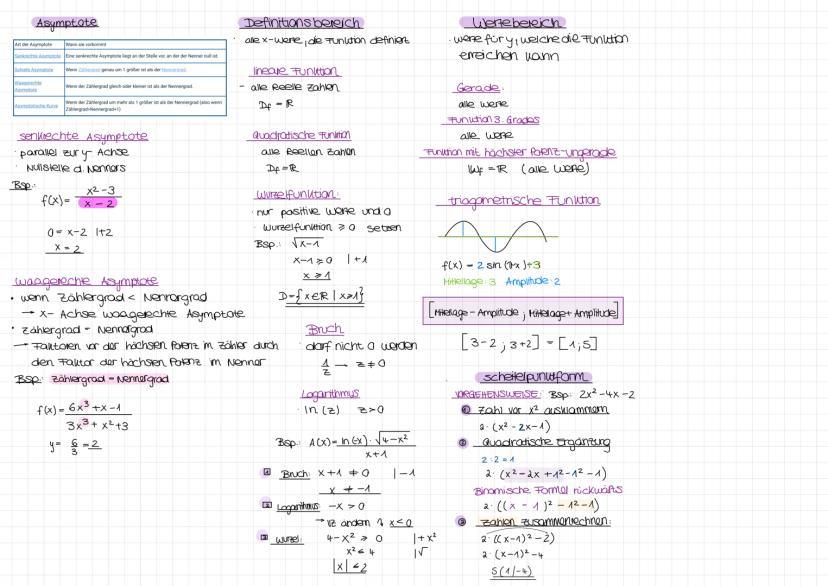 Asymptote
Art der Asymptote Wann sie vorkommt
Senkrechte Asymptote Eine senkrechte Asymptote liegt an der Stelle vor, an der der Nenner null ist.
Schiefe Asymptote Wenn Zählergrad genau um 1 größer ist als der Nennergrad.
Waagerechte Asymptote Wenn der Zählergrad gleich oder kleiner ist als der Nennergrad.
Asymptotische Kurve Wenn der Zählergrad um mehr als 1 größer ist als der Nennergrad (also wenn Zählergrad>Nennergrad+1)
senkrechte Asymptote
· parallel zur y-Achse
· Nullstelle d. Nenners
Bsp.:
f(x) = x² - 3 / x - 2
0 = x-2 |+2
x = 2
waagerechte Asymptote
• wenn Zählergrad < Nennergrad
→ x-Achse waagerechte Asymptote
• Zählergrad = Nennergrad
→ Faktoren vor der höchsten Potenz im Zähler durch
den Faktor der höchsten Potenz im Nenner
Bsp: Zählergrad = Nennergrad
f(x) = 6x³ + x - 1 / 3x³ + x² + 3
y = 6/3 = 2
Definitionsbereich
· alle x-Werte, die Funktion definiert
lineare Funktion
- alle reelle Zahlen
Df = ℝ
quadratische Funktion
alle reellen Zahlen
Df = ℝ
Wurzelfunktion:
· nur positive Werte und 0
· Wurzelfunktion ≥ 0 setzen
Bsp.: √x-1
x-1 ≥ 0 |+1
x ≥ 1
D = {x ∈ ℝ | x ≥ 1}
Bruch
· darf nicht 0 werden
1/z → z ≠ 0
Logarithmus
· ln (z) z > 0
Bsp.: A(x) = ln(-x) · √4-x² / x+1
1 Bruch: x+1 ≠ 0 |-1
x ≠ -1
2 Logarithmus: -x > 0
→ VZ ändern ↯ x < 0
3 Wurzel: 4-x² ≥ 0 |+x²
x² ≤ 4 |√
|x| ≤ 2
Wertebereich
· Werte für y, welche die Funktion
erreichen kann
Gerade:
alle Werte
Funktion 3. Grades
alle Werte
Funktion mit höchster Potenz-ungerade
Wf = ℝ (alle Werte)
trigometrische Funktion
f(x) = 2 sin (πx)+3
Mittellage: 3 Amplitude: 2
[Mittellage - Amplitude ; Mittellage + Amplitude]
[3-2 ; 3+2] = [1;5]
Scheitelpunktform
VORGEHENSWEISE: Bsp: 2x² - 4x - 2
1 Zahl vor x² ausklammern
2 · (x² - 2x - 1)
2 Quadratische Ergänzung
2 : 2 = 1
2 · (x² - 2x + 1² - 1² - 1)
Binomische Formel rückwärts
2 · ((x - 1)² - 1² - 1)
3 Zahlen zusammenrechnen:
2 · ((x-1)² - 2)
2 · (x-1)² - 4
S(1|-4)